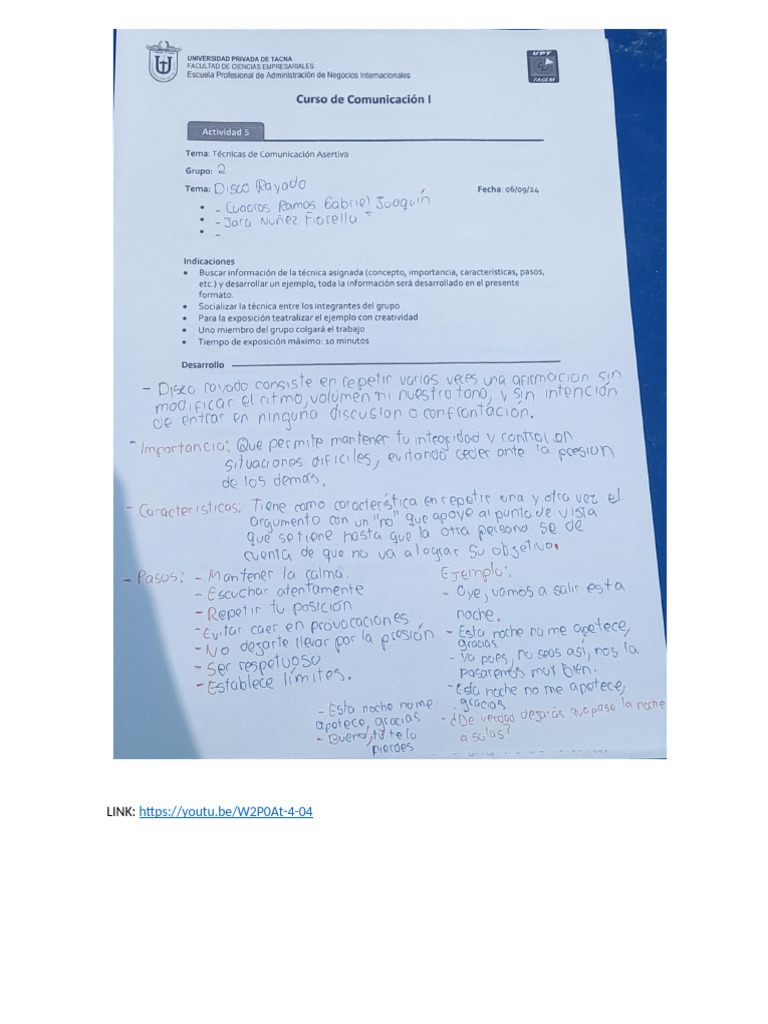 UNIVERSIDAD PRIVADA DE TACNA
FACULTAD DE CIENCIAS EMPRESARIALES
Escuela Profesional de Administración de Negocios Internacionales
UPT
FACEM
Curso de Comunicación I
Actividad 5
Tema: Técnicas de Comunicación Asertiva
Grupo: 2
Tema: Disco Rayado
Fecha: 06/09/24
• - Cuadros Ramos Gabriel Joaquín
• - Jara Nuñez Fiorella
• -
Indicaciones
• Buscar información de la técnica asignada (concepto, importancia, características, pasos,
etc.) y desarrollar un ejemplo, toda la información será desarrollado en el presente
formato.
• Socializar la técnica entre los integrantes del grupo
• Para la exposición teatralizar el ejemplo con creatividad
• Uno miembro del grupo colgará el trabajo
• Tiempo de exposición máximo: 10 minutos
Desarrollo
- Disco rayado consiste en repetir varias veces una afirmacion sin
modificar el ritmo, volumen ni nuestro tono, y sin intención
de entrar en ninguna discusion o confrontación.
- Importancia: Que permite mantener tu integridad y control en
situaciones dificiles, evitando ceder ante la presion
de los demás.
- Caracteristicas: Tiene como característica en repetir una y otra vez el
argumento con un "no" que apoye al punto de vista
que se tiene hasta que la otra persona se de
cuenta de que no va a lograr su objetivo.
- Pasos: - Mantener la calma.
- Escuchar atentamente
- Repetir tu posición
- Evitar caer en provocaciones
- No dejarte llevar por la presión
- Ser respetuoso
- Establece límites.
Ejemplo:
- Oye, vamos a salir esta
noche.
- Esta noche no me apetece,
gracias
- Va pues, no seas así, nos la
pasaremos muy bien.
- Esta noche no me apetece,
gracias
- ¿De verdad dejarás que pase la noche
a solas?
- Esta noche no me
apetece, gracias
- Bueno, tú te lo
pierdes
LINK: https://youtu.be/W2P0At-4-04